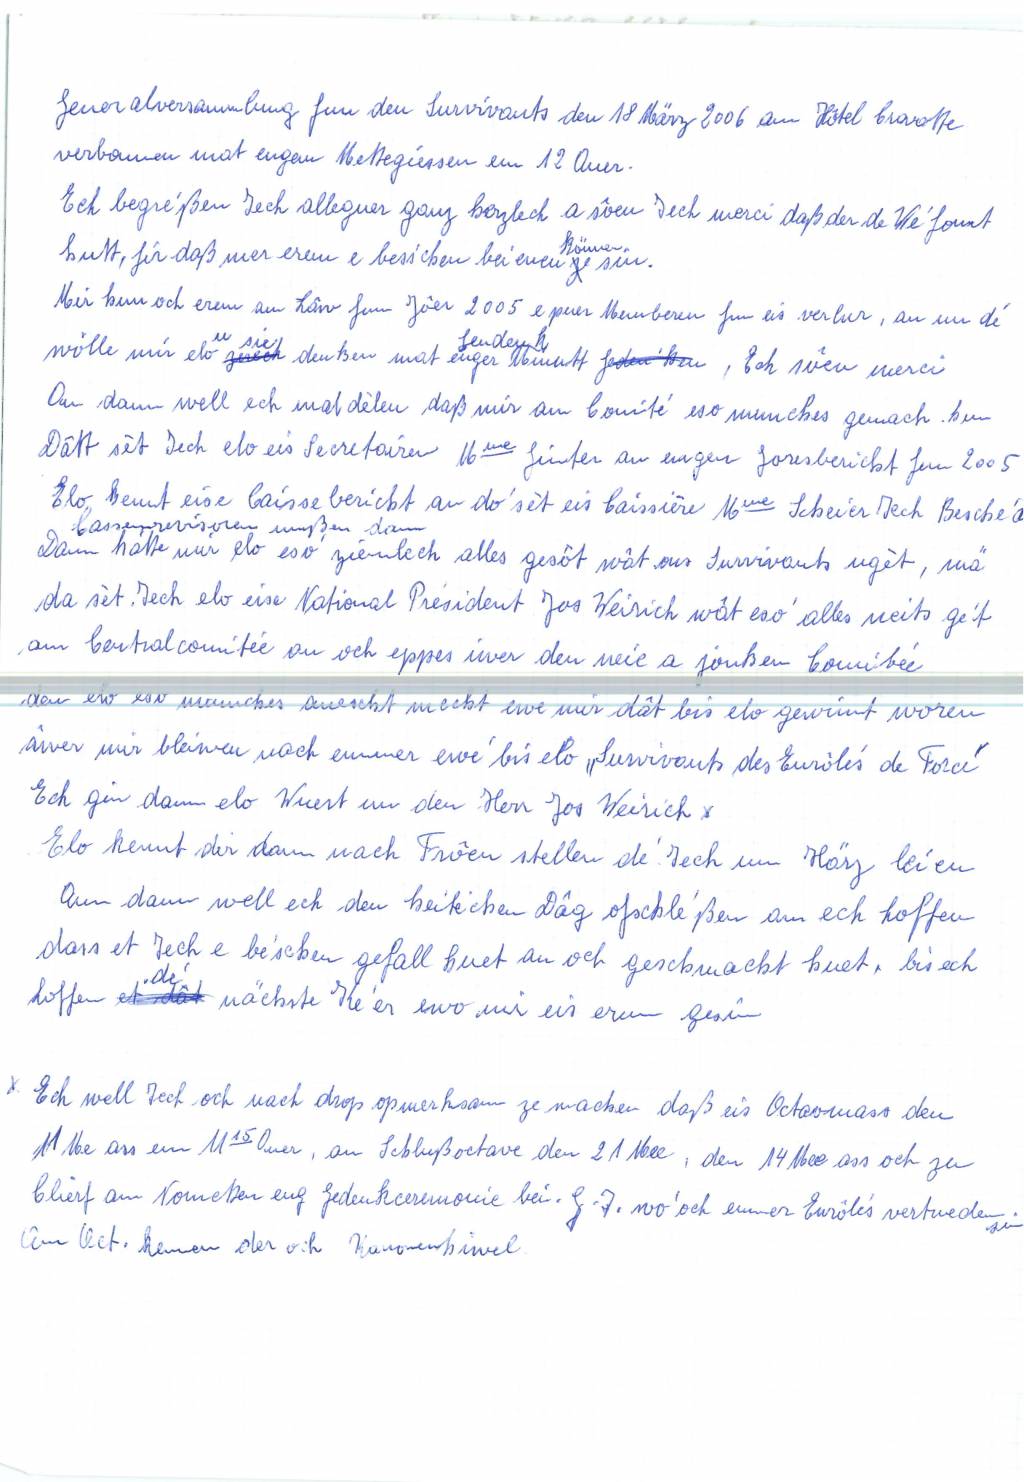 Generalversammlung fun den Survivants den 18 März 2006 am Hôtel Cravatte
verbonnen mat engem Mettegiessen em 12 Auer.
Ech begréßen Iech alleguer ganz herzlech a sôen Iech merci daß der de Wé fonnt
hutt, fir daß mer erem e besschen beieneen können sin.
Mir hun och erem am Läw fum Jôer 2005 e puer Memberen fun eis verlur, an un dé
wölle mir elo u sie denken mat enger Gedenk Minutt, Ech sôen merci
An dann well ech mat dêlen daß mir am Comité eso munches gemach hun
Dâtt sêt Iech elo eis Secretairen Mme Ginter an engem Joresbericht fum 2005
Elo kennt eise Caissebericht an do sêt eis Caissière Mme Scheier Iech Beschéd
Cassenrevisoren mußen dann
Dann hätte mir elo esó ziemlech alles gesôt wât ons Survivants ugêt, mä
da sêt Iech elo eise National Président Jos Weirich wât esó alles neits gét
am Centralcomitée an och eppes iwer den neie a jonken Comitée
den elo eso munches anescht mecht ewe mir dât bis elo gewinnt woren
äwer mir bleiwen nach emmer ewé bis elo „Survivants des Enrôlés de Force"
Ech gin dann elo Wuert un den Herr Jos Weirich x
Elo kennt dir dann nach Frôen stellen dé Iech um Härz leien
Ann dann well ech den heitichen Dâg ofschléßen an ech hoffen
dass et Iech e béschen gefall huet an och geschmacht huet, bis ech
hoffen dé nächste Ké er ewo mir eis erem gesin
x Ech well Iech och nach drop opmerksam ze machen daß eis Octavmass den
11 Me ass em 11 15 Auer, an Schlußoctave den 21 Mee, den 14 Mee ass och zu
Clierf am eng Gedenkceremonie bei. G. J. wo och emmer Enrôlés vertrueden sin
Am Oct. kemen der och Kanounenhiwel